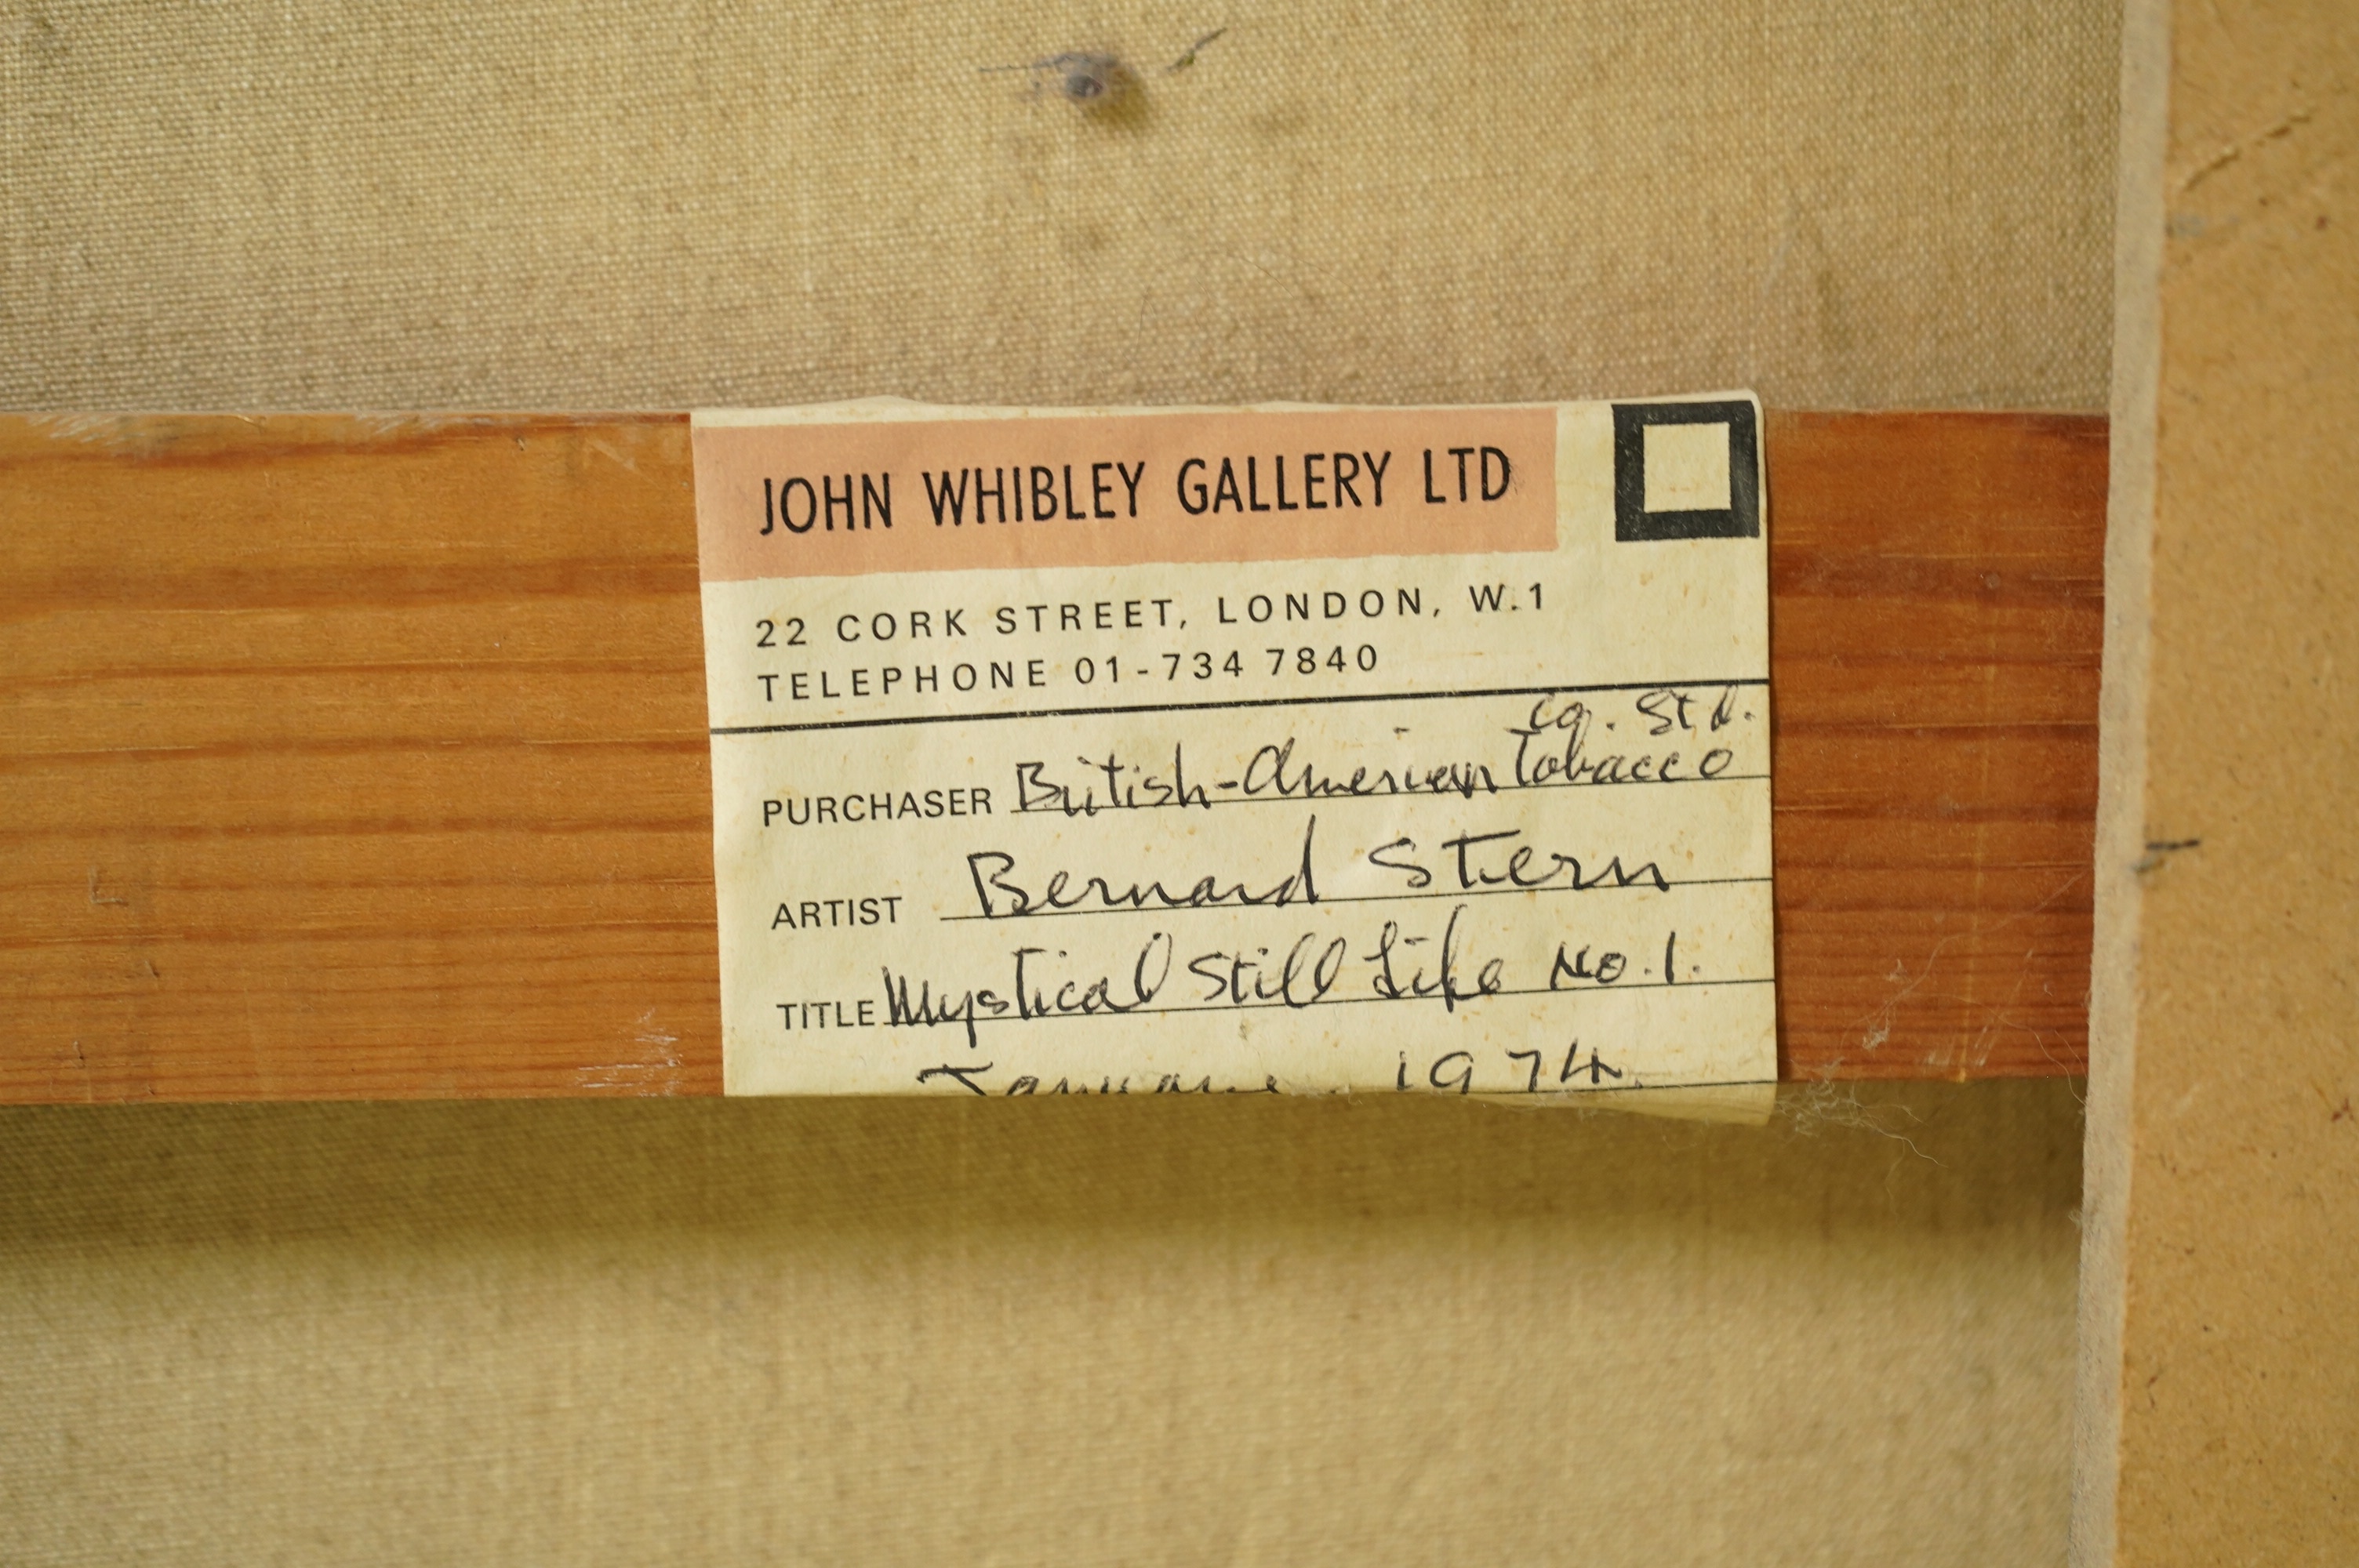 JOHN WHIBLEY GALLERY LTD
22 CORK STREET, LONDON, W.1
TELEPHONE 01-734 7840
Co. Ltd.
PURCHASER British-American Tobacco
ARTIST Bernard Stern
TITLE Mystical Still Life No.1.
January 1974.